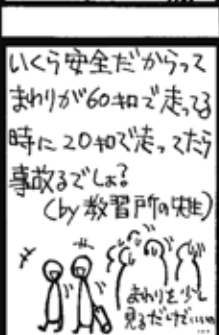 いくら安全だからって
まわりが60キロで走ってる
時に20キロで走ってたら
事故るでしょ?
(by 教習所の先生)
まわりを少し
見るだけでいいの
…